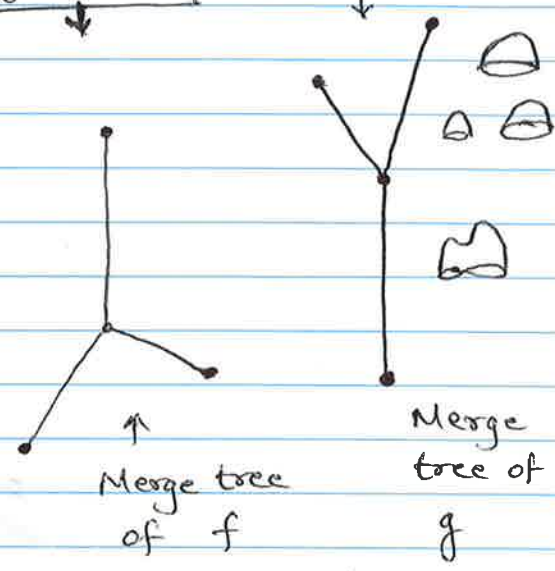 Merge tree
of f
Merge
tree of
g